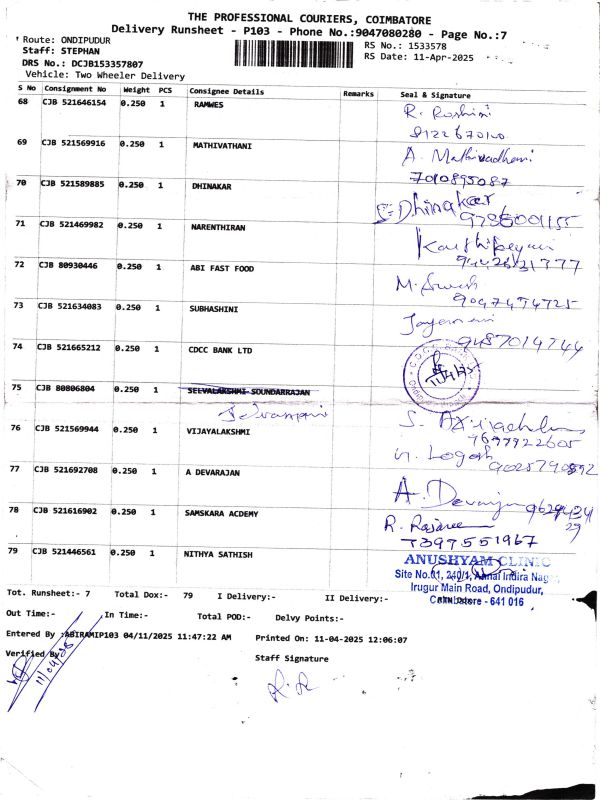 THE PROFESSIONAL COURIERS, COIMBATORE
Delivery Runsheet - P103 - Phone No.:9047080280 - Page No.:7
Route: ONDIPUDUR
RS No.: 1533578
Staff: STEPHAN
RS Date: 11-Apr-2025
DRS No.: DCJB153357807
Vehicle: Two Wheeler Delivery
S No Consignment No Weight PCS Consignee Details Remarks Seal & Signature
68 CJB 521646154 0.250 1 RAMWES R. Roshini
69 CJB 521569916 0.250 1 MATHIVATHANI A. Mathivadhani
7010895087
70 CJB 521589885 0.250 1 DHINAKAR Dhinakar
71 CJB 521469982 0.250 1 NARENTHIRAN
72 CJB 80930446 0.250 1 ABI FAST FOOD
73 CJB 521634083 0.250 1 SUBHASHINI
74 CJB 521665212 0.250 1 CDCC BANK LTD
75 CJB 80806804 0.250 1 SELVALAKSHMI SOUNDARRAJAN
76 CJB 521569944 0.250 1 VIJAYALAKSHMI
7697922605
77 CJB 521692708 0.250 1 A DEVARAJAN
78 CJB 521616902 0.250 1 SAMSKARA ACDEMY
7397551967
79 CJB 521446561 0.250 1 NITHYA SATHISH ANUSHYAM CLINIC
Site No.01, 240/1, Annai Indira Nagar
Irugur Main Road, Ondipudur,
Coimbatore - 641 016
Tot. Runsheet:- 7 Total Dox:- 79 I Delivery:- II Delivery:-
Out Time:- In Time:- Total POD:- Delvy Points:-
Entered By :ABIRAMIP103 04/11/2025 11:47:22 AM Printed On: 11-04-2025 12:06:07
Verified By
Staff Signature